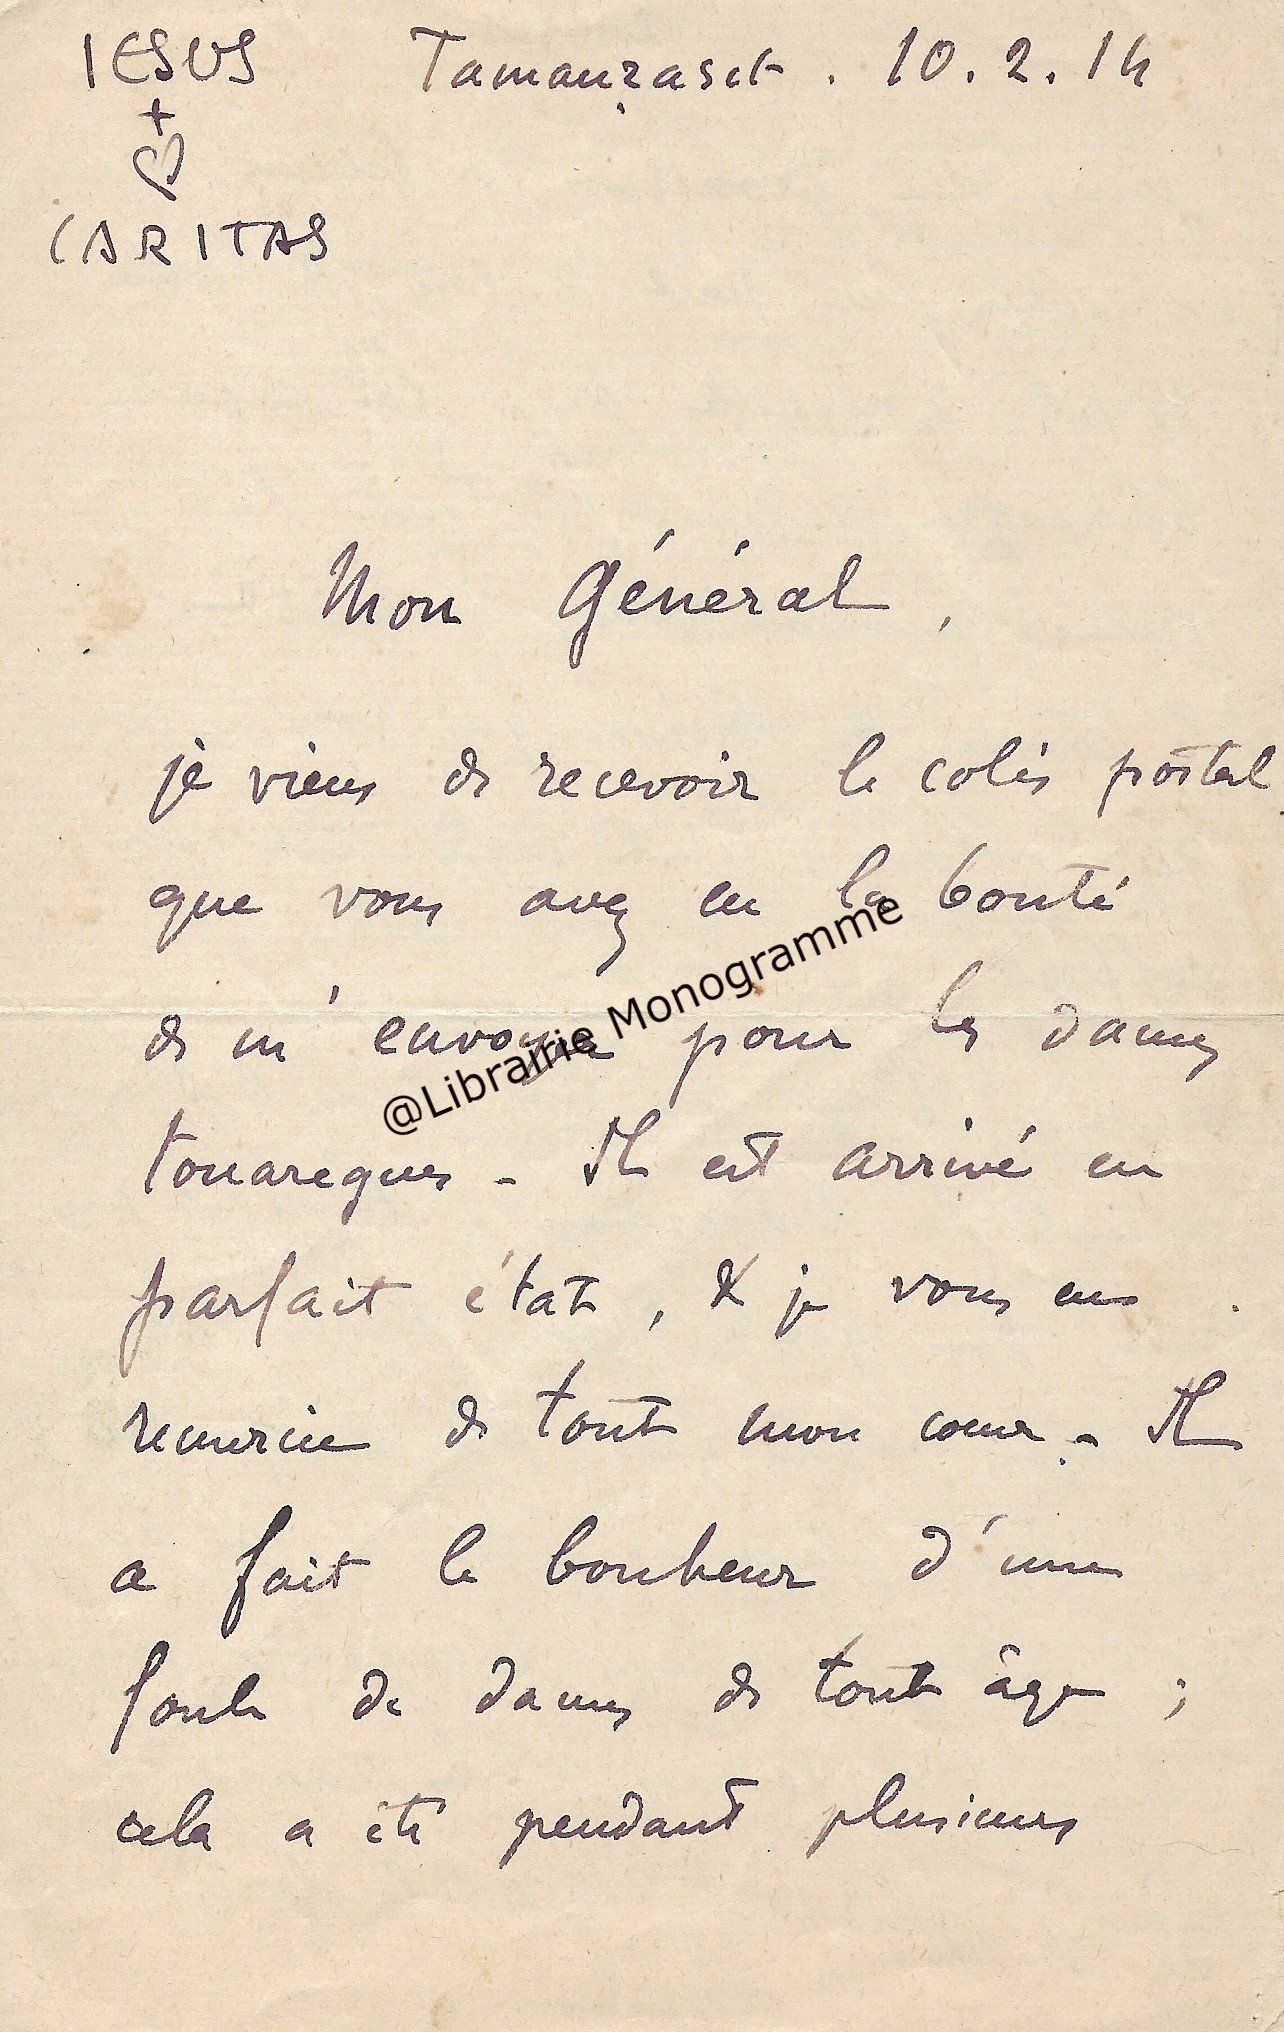 IESUS
+
♡
CARITAS
Tamanraset. 10.2.14
Mon Général,
je viens de recevoir le colis postal
que vous avez eu la bonté
de m'envoyer pour les dames
touaregues - Il est arrivé en
parfait état, & je vous en
remercie de tout mon coeur - Il
a fait le bonheur d'une
foule de dames de tout âge ;
cela a été pendant plusieurs
@Librairie Monogramme